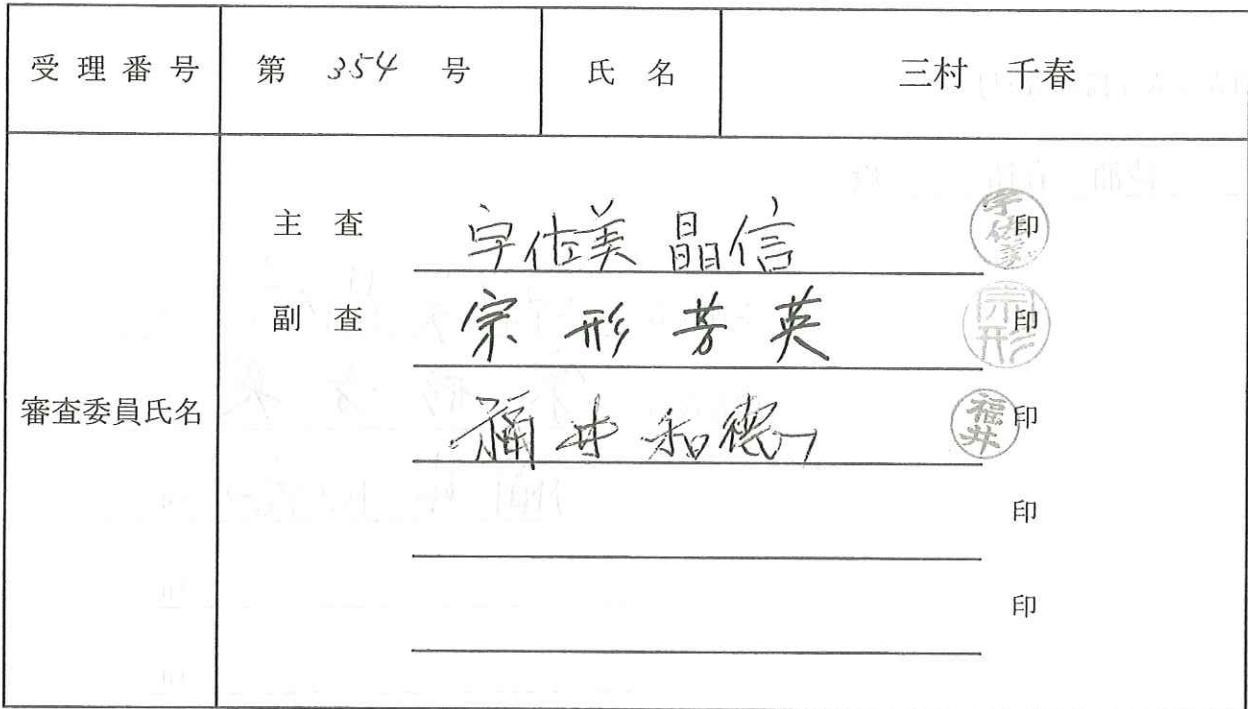 受理番号 第 354 号 氏名 三村 千春
審査委員氏名
主査 宇佐美 晶信 印 宇佐美
副査 宗形 芳英 印 宗形
福井 和徳 印 福井
印
印